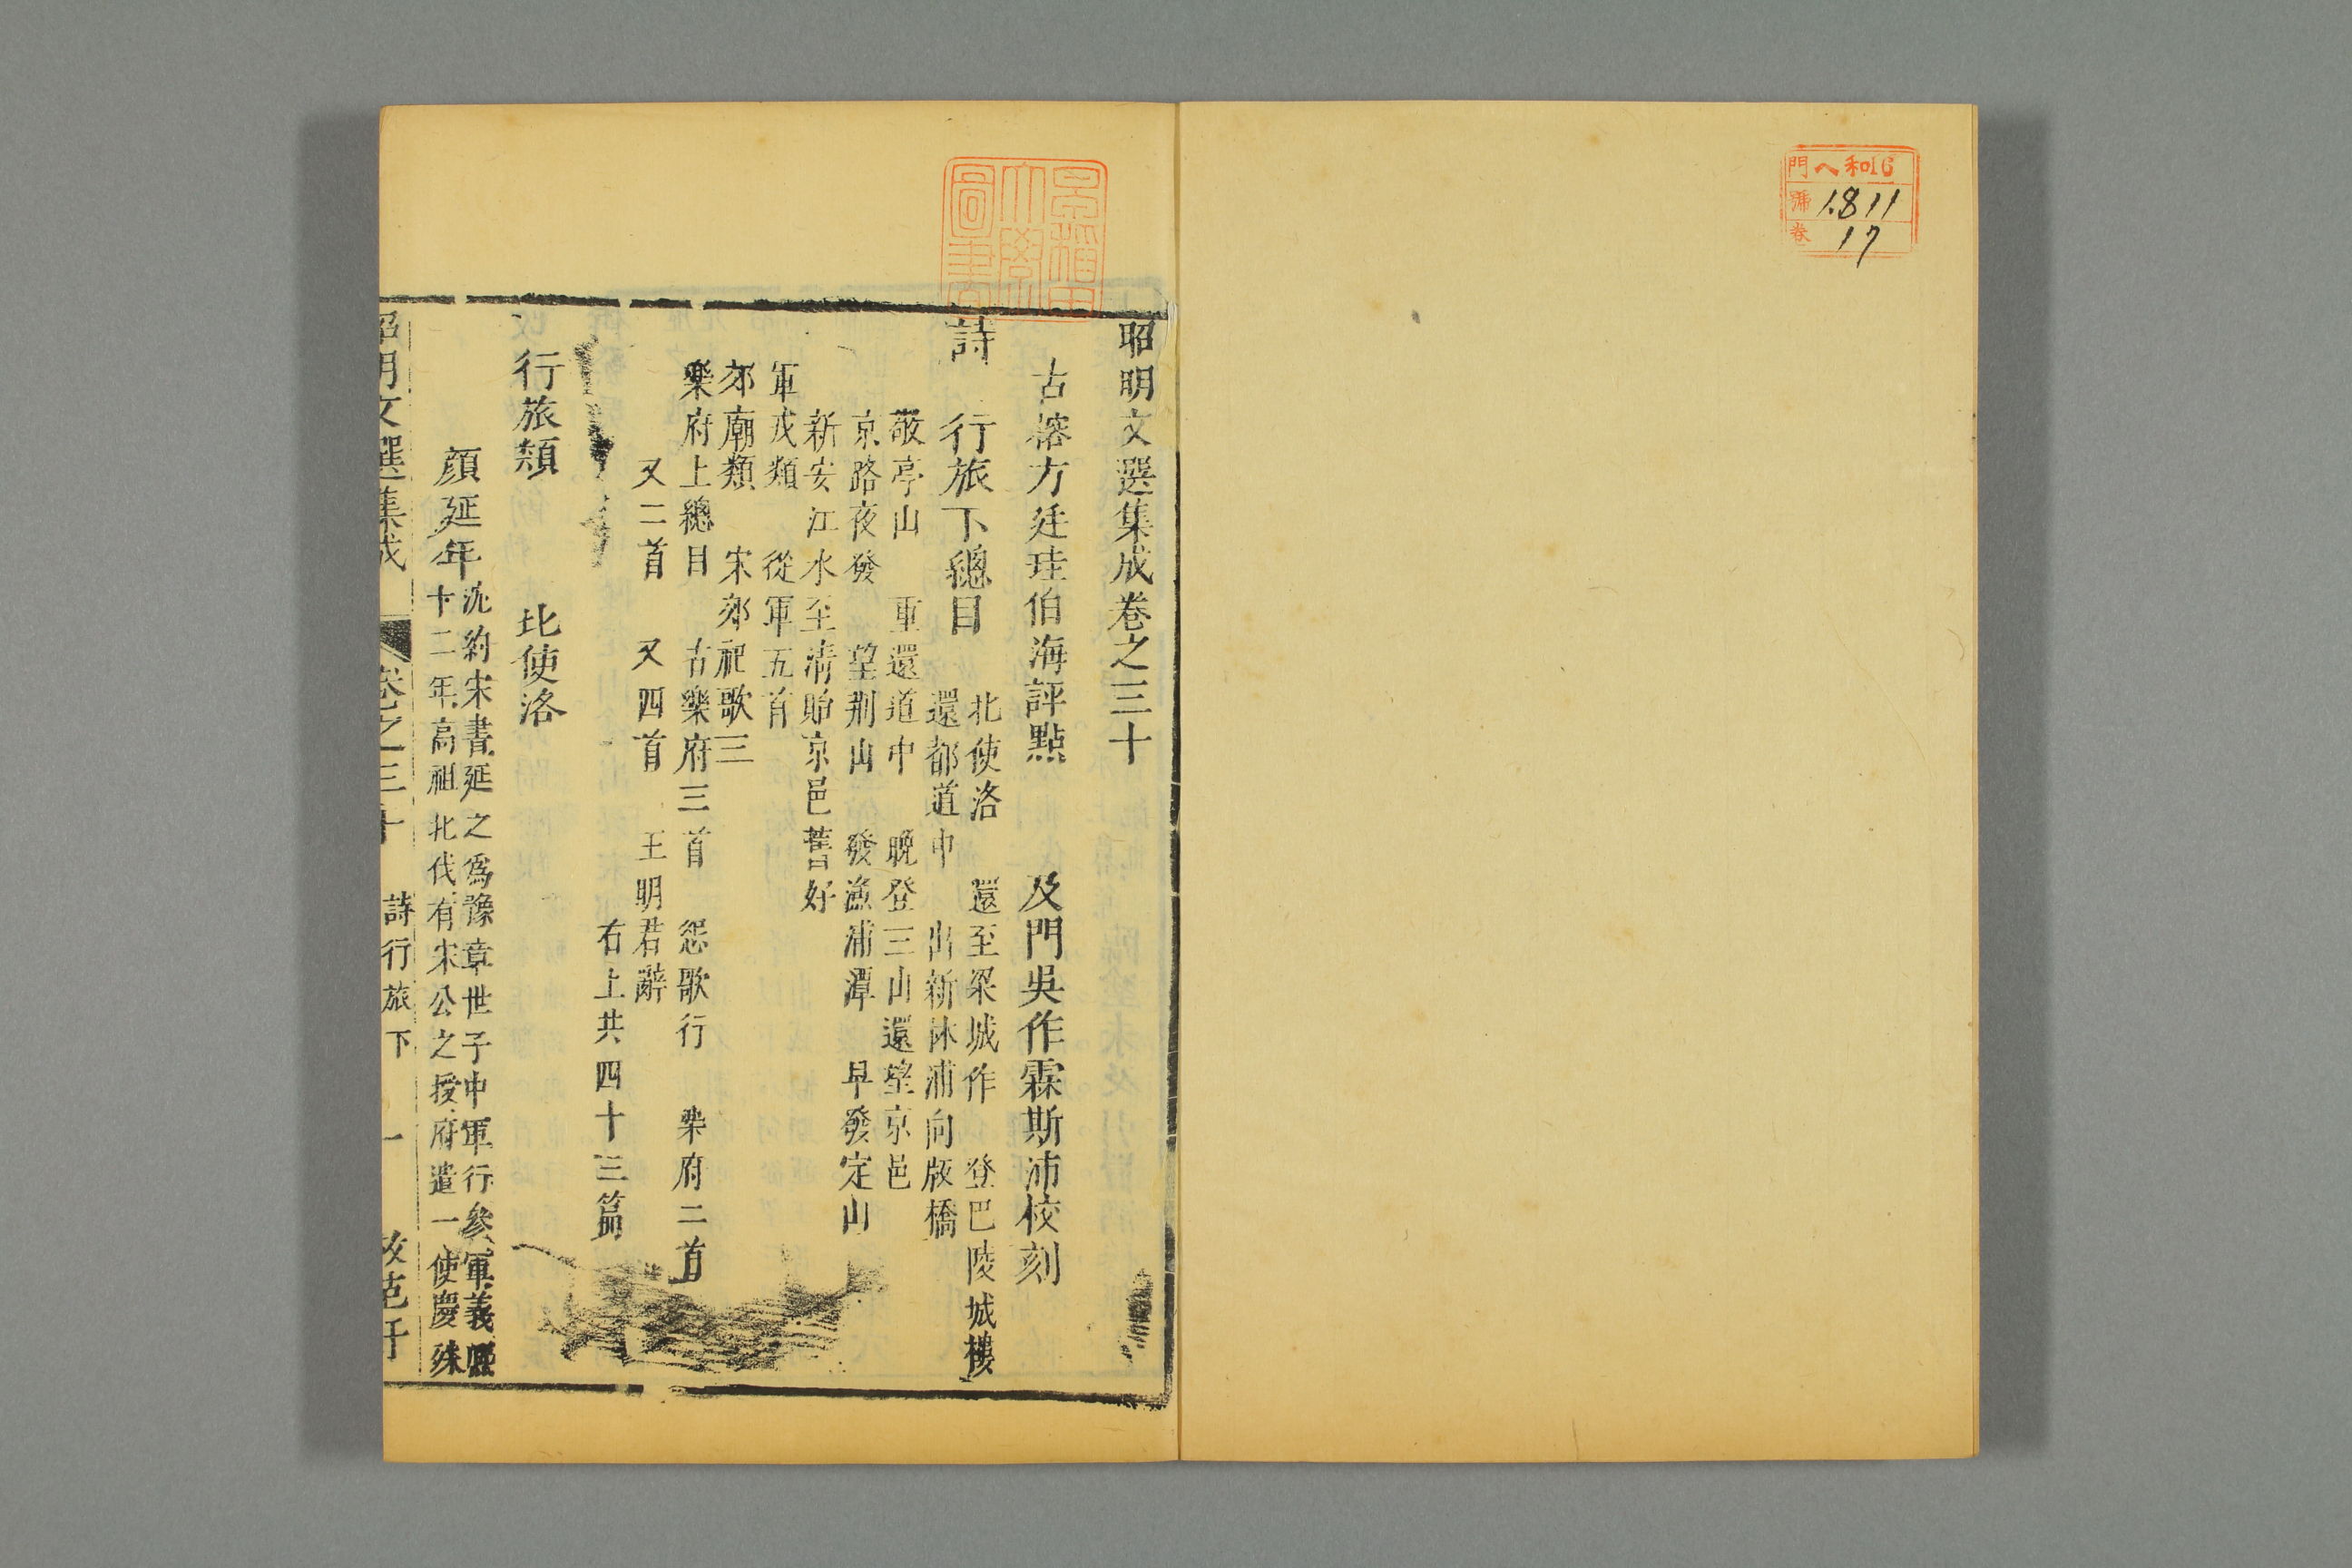 門 ヘ和16
號 1811
卷 17
早稲田
大學
圖書
昭明文選集成卷之三十
古榕方廷珪伯海評點 及門吳作霖斯沛校刻
詩 行旅下總目 北使洛 還至梁城作 登巴陵城樓
還都道中 出新林浦向版橋
敬亭山 重還道中 晚登三山還望京邑
京路夜發 望荆山 發漁浦潭 早發定山
新安江水至清貽京邑舊好
軍戎類 從軍五首
郊廟類 宋郊祀歌三
樂府上總目 古樂府三首 怨歌行 樂府二首
又二首 又四首 王明君辭
右上共四十三篇
行旅類 北使洛
顔延年 沈約宋書延之爲豫章世子中軍行參軍義熙
十二年高祖北伐有宋公之授府遣一使慶殊
昭明文選集成 卷之三十 詩行旅下 一 倣范軒